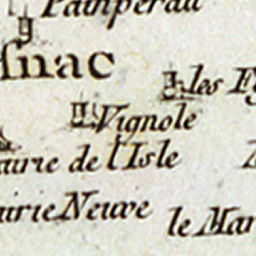 Pamperdu
snac
les F
Vignole
airie de l'Isle
airie Neuve
le Mar